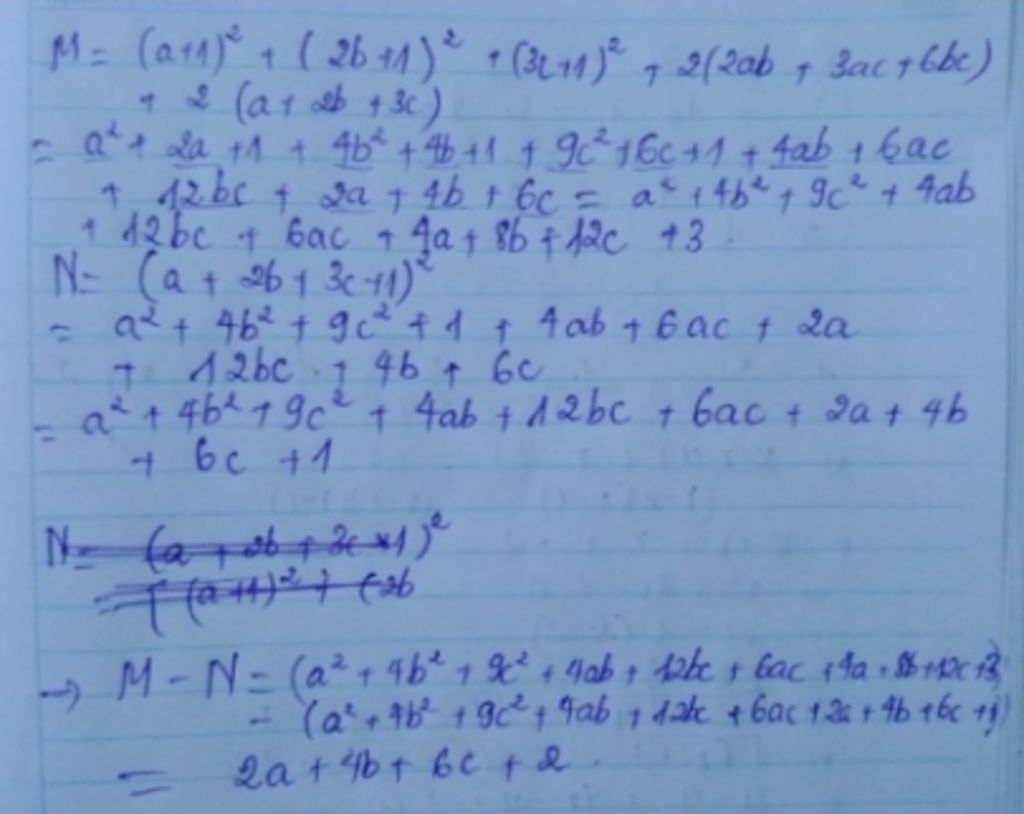 M = (a+1)² + (2b+1)² + (3c+1)² + 2(2ab + 3ac + 6bc)
+ 2 (a + 2b + 3c)
= a² + 2a + 1 + 4b² + 4b + 1 + 9c² + 6c + 1 + 4ab + 6ac
+ 12bc + 2a + 4b + 6c = a² + 4b² + 9c² + 4ab
+ 12bc + 6ac + 4a + 8b + 12c + 3
N = (a + 2b + 3c + 1)²
= a² + 4b² + 9c² + 1 + 4ab + 6ac + 2a
+ 12bc + 4b + 6c
= a² + 4b² + 9c² + 4ab + 12bc + 6ac + 2a + 4b
+ 6c + 1
N = (a + 2b + 3c + 1)²
= [(a+1)² + (2b
→ M - N = (a² + 4b² + 9c² + 4ab + 12bc + 6ac + 4a + 8b + 12c + 3)
- (a² + 4b² + 9c² + 4ab + 12bc + 6ac + 2a + 4b + 6c + 1)
= 2a + 4b + 6c + 2.